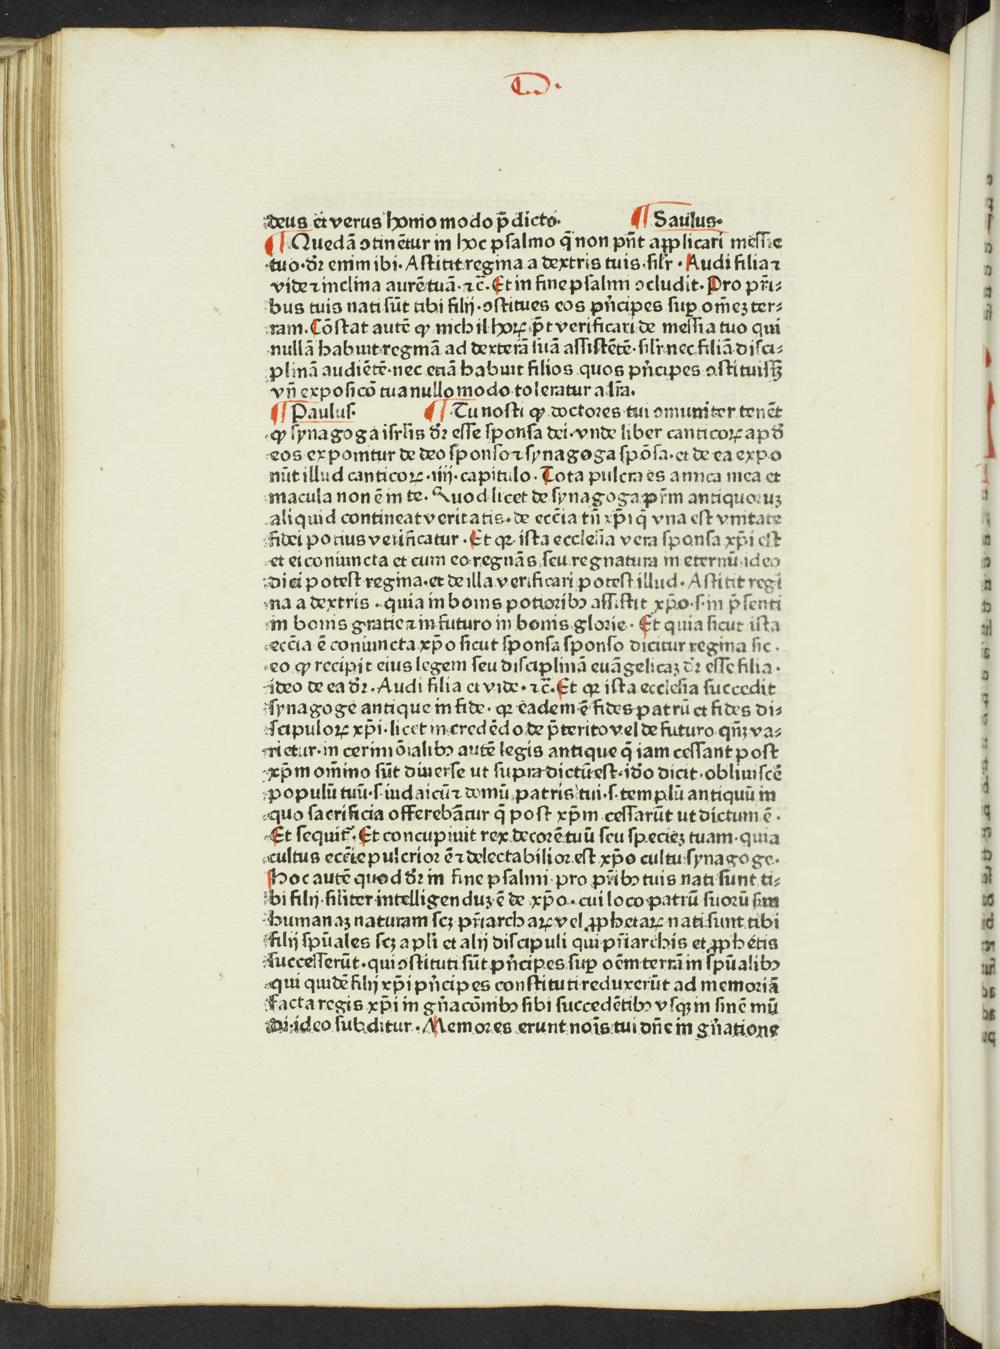 deus et verus homo modo p̄dicto.   ¶ Saulus.
¶ Quedā ↄtinētur in hoc psalmo q̄ non pn̄t applicari messie
tuo. dr̄ enim ibi. Astitit regina a dextris tuis. silr̄. Audi filia ⁊
vide ⁊ inclina aurē tuā. ⁊c̄. Et in fine psalmi ↄcludit. Pro pr̄i⸗
bus tuis nati sūt tibi filij. ↄstitues eos pn̄cipes suꝑ omēꝫ ter⸗
ram. Cōstat autē ꝙ nichil hoꝝ p̄t verificari de messia tuo qui
nullā habuit reginā ad dexterā suā assistētē. silr̄ nec filiā disci⸗
plinā audiētē. nec etiā habuit filios quos pn̄cipes ↄstituissꝫ
vn̄ exposicō tua nullo modo toleratur a lr̄a.
¶ Paulus.   ¶ Tu nosti ꝙ doctores tui ↄmuniter tenēt
ꝙ synagoga isrl̄is dr̄ esse sponsa dei. vnde liber canticoꝝ apd̄
eos exponitur de deo sponso ⁊ synagoga spōsa. et de ea expo
nūt illud canticoꝝ. iiij. capitulo. Tota pulcra es amica mea et
macula non ē in te. Quod licet de synagoga pr̄m antiquoruꝫ
aliquid contineat veritatis. de ecc̄ia tn̄ xp̄i q̄ vna est vnitate
fidei potius verificatur. Et qꝛ ista ecclesia vera sponsa xp̄i est
et ei coniuncta et cum eo regnās seu regnatura in eternū. ideo
dici potest regina. et de illa verificari potest illud. Astitit regi
na a dextris. quia in bonis potioribꝰ assistit xp̄o. s. in p̄senti
in bonis gratie ⁊ in futuro in bonis glorie. Et quia sicut ista
ecc̄ia ē coniuncta xp̄o sicut sponsa sponso dicitur regina sic.
eo ꝙ recipit eius legem seu disciplinā euāgelicaꝫ dr̄ esse filia.
ideo de ea dr̄. Audi filia et vide. ⁊c̄. Et qꝛ ista ecclesia succedit
synagoge antique in fide. qꝛ eadem ē fides patrū et fides di⸗
scipuloꝝ xp̄i. licet in credēdo de p̄terito vel de futuro qn̄ꝫ va⸗
rietur. in cerimōialibꝰ autē legis antique q̄ iam cessant post
xp̄m omīno sūt diuerse ut supra dictū est. idō dicit. obliuiscē
populū tuū. s. iudaicū ⁊ domū patris tui. s. templū antiquū in
quo sacrificia offerebātur q̄ post xp̄m cessarūt ut dictum ē.
Et sequit̄. Et concupiuit rex decorē tuū seu specieꝫ tuam. quia
cultus ecc̄ie pulcrior ē ⁊ delectabilior est xp̄o cultu synagoge.
Hoc autē quod dr̄ in fine psalmi. pro pr̄ibꝰ tuis nati sunt ti⸗
bi filij. siliter intelligenduꝫ ē de xp̄o. cui loco patrū suorū sm̄
humanaꝫ naturam scꝫ pr̄iarchaꝝ vel ꝓphetaꝝ nati sunt tibi
filij spūales scꝫ apl̄i et alij discipuli qui pr̄iarchis et ꝓphētis
successerūt. qui ↄstituti sūt pn̄cipes suꝑ oēm terrā in spūalibꝰ
qui quidē filij xp̄i pn̄cipes constituti reduxerūt ad memoriā
facta regis xp̄i in gn̄acōnibꝰ sibi succedētibꝰ vsqꝫ in finē mū
di. ideo subditur. Memores erunt nōis tui dn̄e in gn̄atione